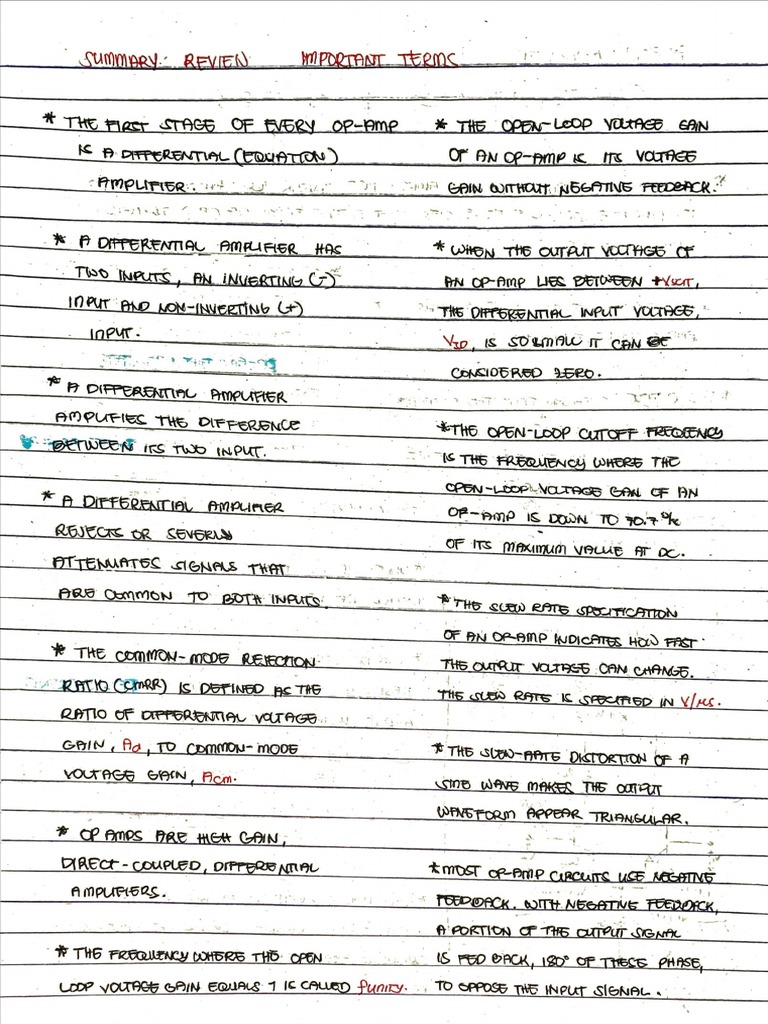 SUMMARY: REVIEW IMPORTANT TERMS
* THE FIRST STAGE OF EVERY OP-AMP
IS A DIFFERENTIAL (EQUATION)
AMPLIFIER
* A DIFFERENTIAL AMPLIFIER HAS
TWO INPUTS, AN INVERTING (-)
INPUT AND NON-INVERTING (+)
INPUT.
* A DIFFERENTIAL AMPLIFIER
AMPLIFIES THE DIFFERENCE
BETWEEN ITS TWO INPUT.
* A DIFFERENTIAL AMPLIFIER
REJECTS OR SEVERLY
ATTENUATES SIGNALS THAT
ARE COMMON TO BOTH INPUTS.
* THE COMMON-MODE REJECTION
RATIO (CMRR) IS DEFINED AS THE
RATIO OF DIFFERENTIAL VOLTAGE
GAIN, Ad, TO COMMON-MODE
VOLTAGE GAIN, Acm.
* OP AMPS ARE HIGH GAIN,
DIRECT-COUPLED, DIFFERENTIAL
AMPLIFIERS.
* THE FREQUENCY WHERE THE OPEN
LOOP VOLTAGE GAIN EQUALS 1 IS CALLED funity.
* THE OPEN-LOOP VOLTAGE GAIN
OF AN OP-AMP IS ITS VOLTAGE
GAIN WITHOUT NEGATIVE FEEDBACK.
* WHEN THE OUTPUT VOLTAGE OF
AN OP-AMP LIES BETWEEN ±VSAT,
THE DIFFERENTIAL INPUT VOLTAGE,
VID, IS SO SMALL IT CAN BE
CONSIDERED ZERO.
* THE OPEN-LOOP CUTOFF FREQUENCY
IS THE FREQUENCY WHERE THE
OPEN-LOOP VOLTAGE GAN OF AN
OP-AMP IS DOWN TO 70.7%
OF ITS MAXIMUM VALUE AT DC.
* THE SLEW RATE SPECIFICATION
OF AN OP-AMP INDICATES HOW FAST
THE OUTPUT VOLTAGE CAN CHANGE.
THE SLEW RATE IS SPECIFIED IN V/μs.
* THE SLEW-RATE DISTORTION OF A
SINE WAVE MAKES THE OUTPUT
WAVEFORM APPEAR TRIANGULAR.
* MOST OP-AMP CIRCUITS USE NEGATIVE
FEEDBACK. WITH NEGATIVE FEEDBACK,
A PORTION OF THE OUTPUT SIGNAL
IS FED BACK, 180° OF THESE PHASE,
TO OPPOSE THE INPUT SIGNAL.